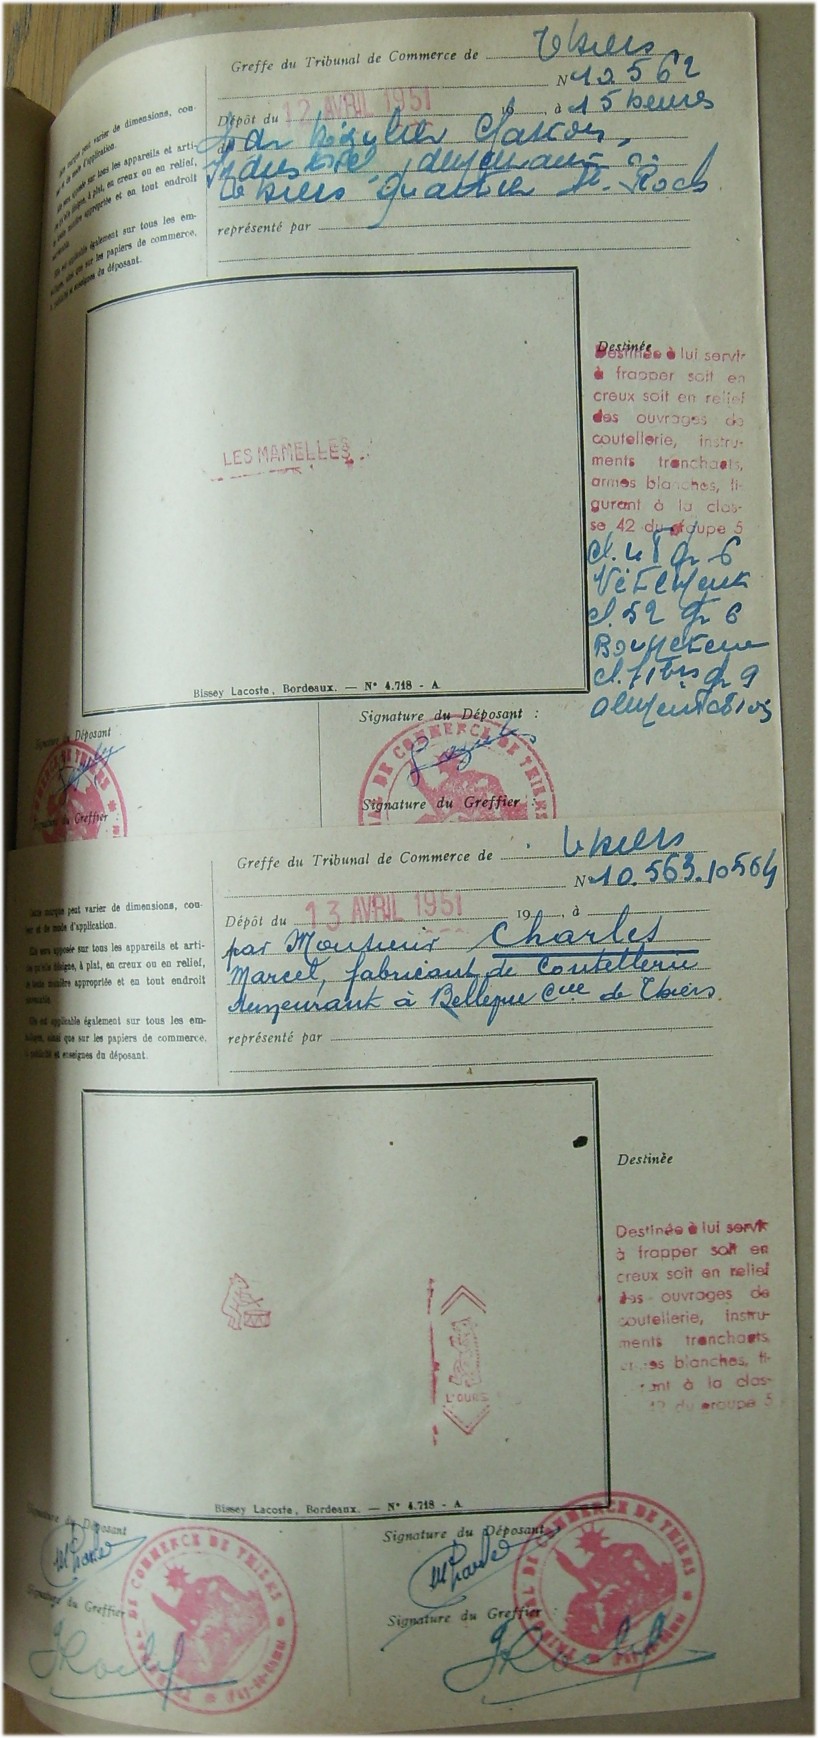 Greffe du Tribunal de Commerce de Thiers
N° 10.562
Dépôt du 12 AVRIL 1951 19 , à 15 heures
demeurant à
Thiers quartier St. Roch
représenté par
marque peut varier de dimensions, cou-
et de mode d'application.
sera apposée sur tous les appareils et arti-
désigne, à plat, en creux ou en relief,
manière appropriée et en tout endroit
est applicable également sur tous les em-
ainsi que sur les papiers de commerce,
et enseignes du déposant.
Destinée
Destinée à lui servir
à frapper soit en
creux soit en relief
des ouvrages de
coutellerie, instru-
ments tranchants,
armes blanches, fi-
gurant à la clas-
se 42 du groupe 5
cl. 48 gr 6
Vêtements
cl. 52 gr 6
Bonneterie
LES MAMELLES
Bissey Lacoste, Bordeaux. — N° 4.718 - A
Signature du Déposant
Signature du Déposant :
Signature du Greffier
Signature du Greffier :
DE COMMERCE DE THIERS
Greffe du Tribunal de Commerce de Thiers
N° 10.563.10564
Dépôt du 13 AVRIL 1951 19 , à
par Monsieur Charles
Marcel, fabricant de Coutellerie
demeurant à Bellevue Cne de Thiers.
représenté par
marque peut varier de dimensions, cou-
leur et de mode d'application.
Elle sera apposée sur tous les appareils et arti-
cles qu'elle désigne, à plat, en creux ou en relief,
de toute manière appropriée et en tout endroit
Elle est applicable également sur tous les em-
ballages, ainsi que sur les papiers de commerce,
publicité et enseignes du déposant.
Destinée
Destinée à lui servir
à frapper soit en
creux soit en relief
des ouvrages de
coutellerie, instru-
ments tranchants,
armes blanches, fi-
gurant à la clas-
42 du groupe 5
L'OURS
Bissey Lacoste, Bordeaux. — N° 4.718 - A
Signature du Déposant
Signature du Déposant
M Charles
M Charles
Signature du Greffier
Signature du Greffier :
TRIBUNAL DE COMMERCE DE THIERS * PUY-DE-DOME *
TRIBUNAL DE COMMERCE DE THIERS * PUY-DE-DOME *